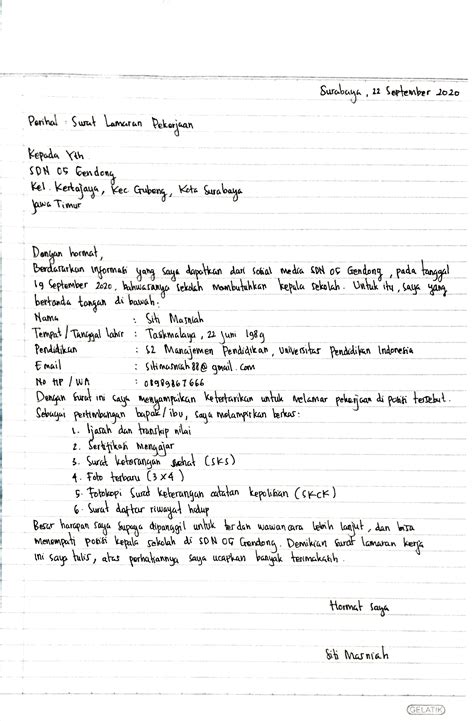 Surabaya, 22 September 2020
Perihal : Surat Lamaran Pekerjaan
Kepada Yth
SDN 05 Gendong
Kel. Kertajaya, Kec Gubeng, Kota Surabaya
Jawa Timur
Dengan hormat,
Berdasarkan informasi yang saya dapatkan dari sosial media SDN 05 Gendong, pada tanggal
19 September 2020, bahwasanya sekolah membutuhkan kepala sekolah. Untuk itu, saya yang
bertanda tangan di bawah:
Nama : Siti Masniah
Tempat / Tanggal lahir : Tasikmalaya, 22 Juni 1989
Pendidikan : S2 Manajemen Pendidikan, Universitas Pendidikan Indonesia
Email : sitimasniah88@gmail.com
No HP / WA : 08989867666
Dengan surat ini saya menyampaikan ketertarikan untuk melamar pekerjaan di posisi tersebut.
Sebagai pertimbangan bapak/ibu, saya melampirkan berkas:
1. Ijasah dan transkip nilai
2. Sertifikasi Mengajar
3. Surat keterangan sehat (SKS)
4. Foto terbaru (3x4)
5. Fotokopi Surat keterangan catatan kepolisian (SKCK)
6. Surat daftar riwayat hidup
Besar harapan saya supaya dipanggil untuk tes dan wawancara lebih lanjut, dan bisa
menempati posisi kepala sekolah di SDN 05 Gendong. Demikian surat lamaran kerja
ini saya tulis, atas perhatiannya saya ucapkan banyak terimakasih.
Hormat saya
Siti Masniah
GELATIK